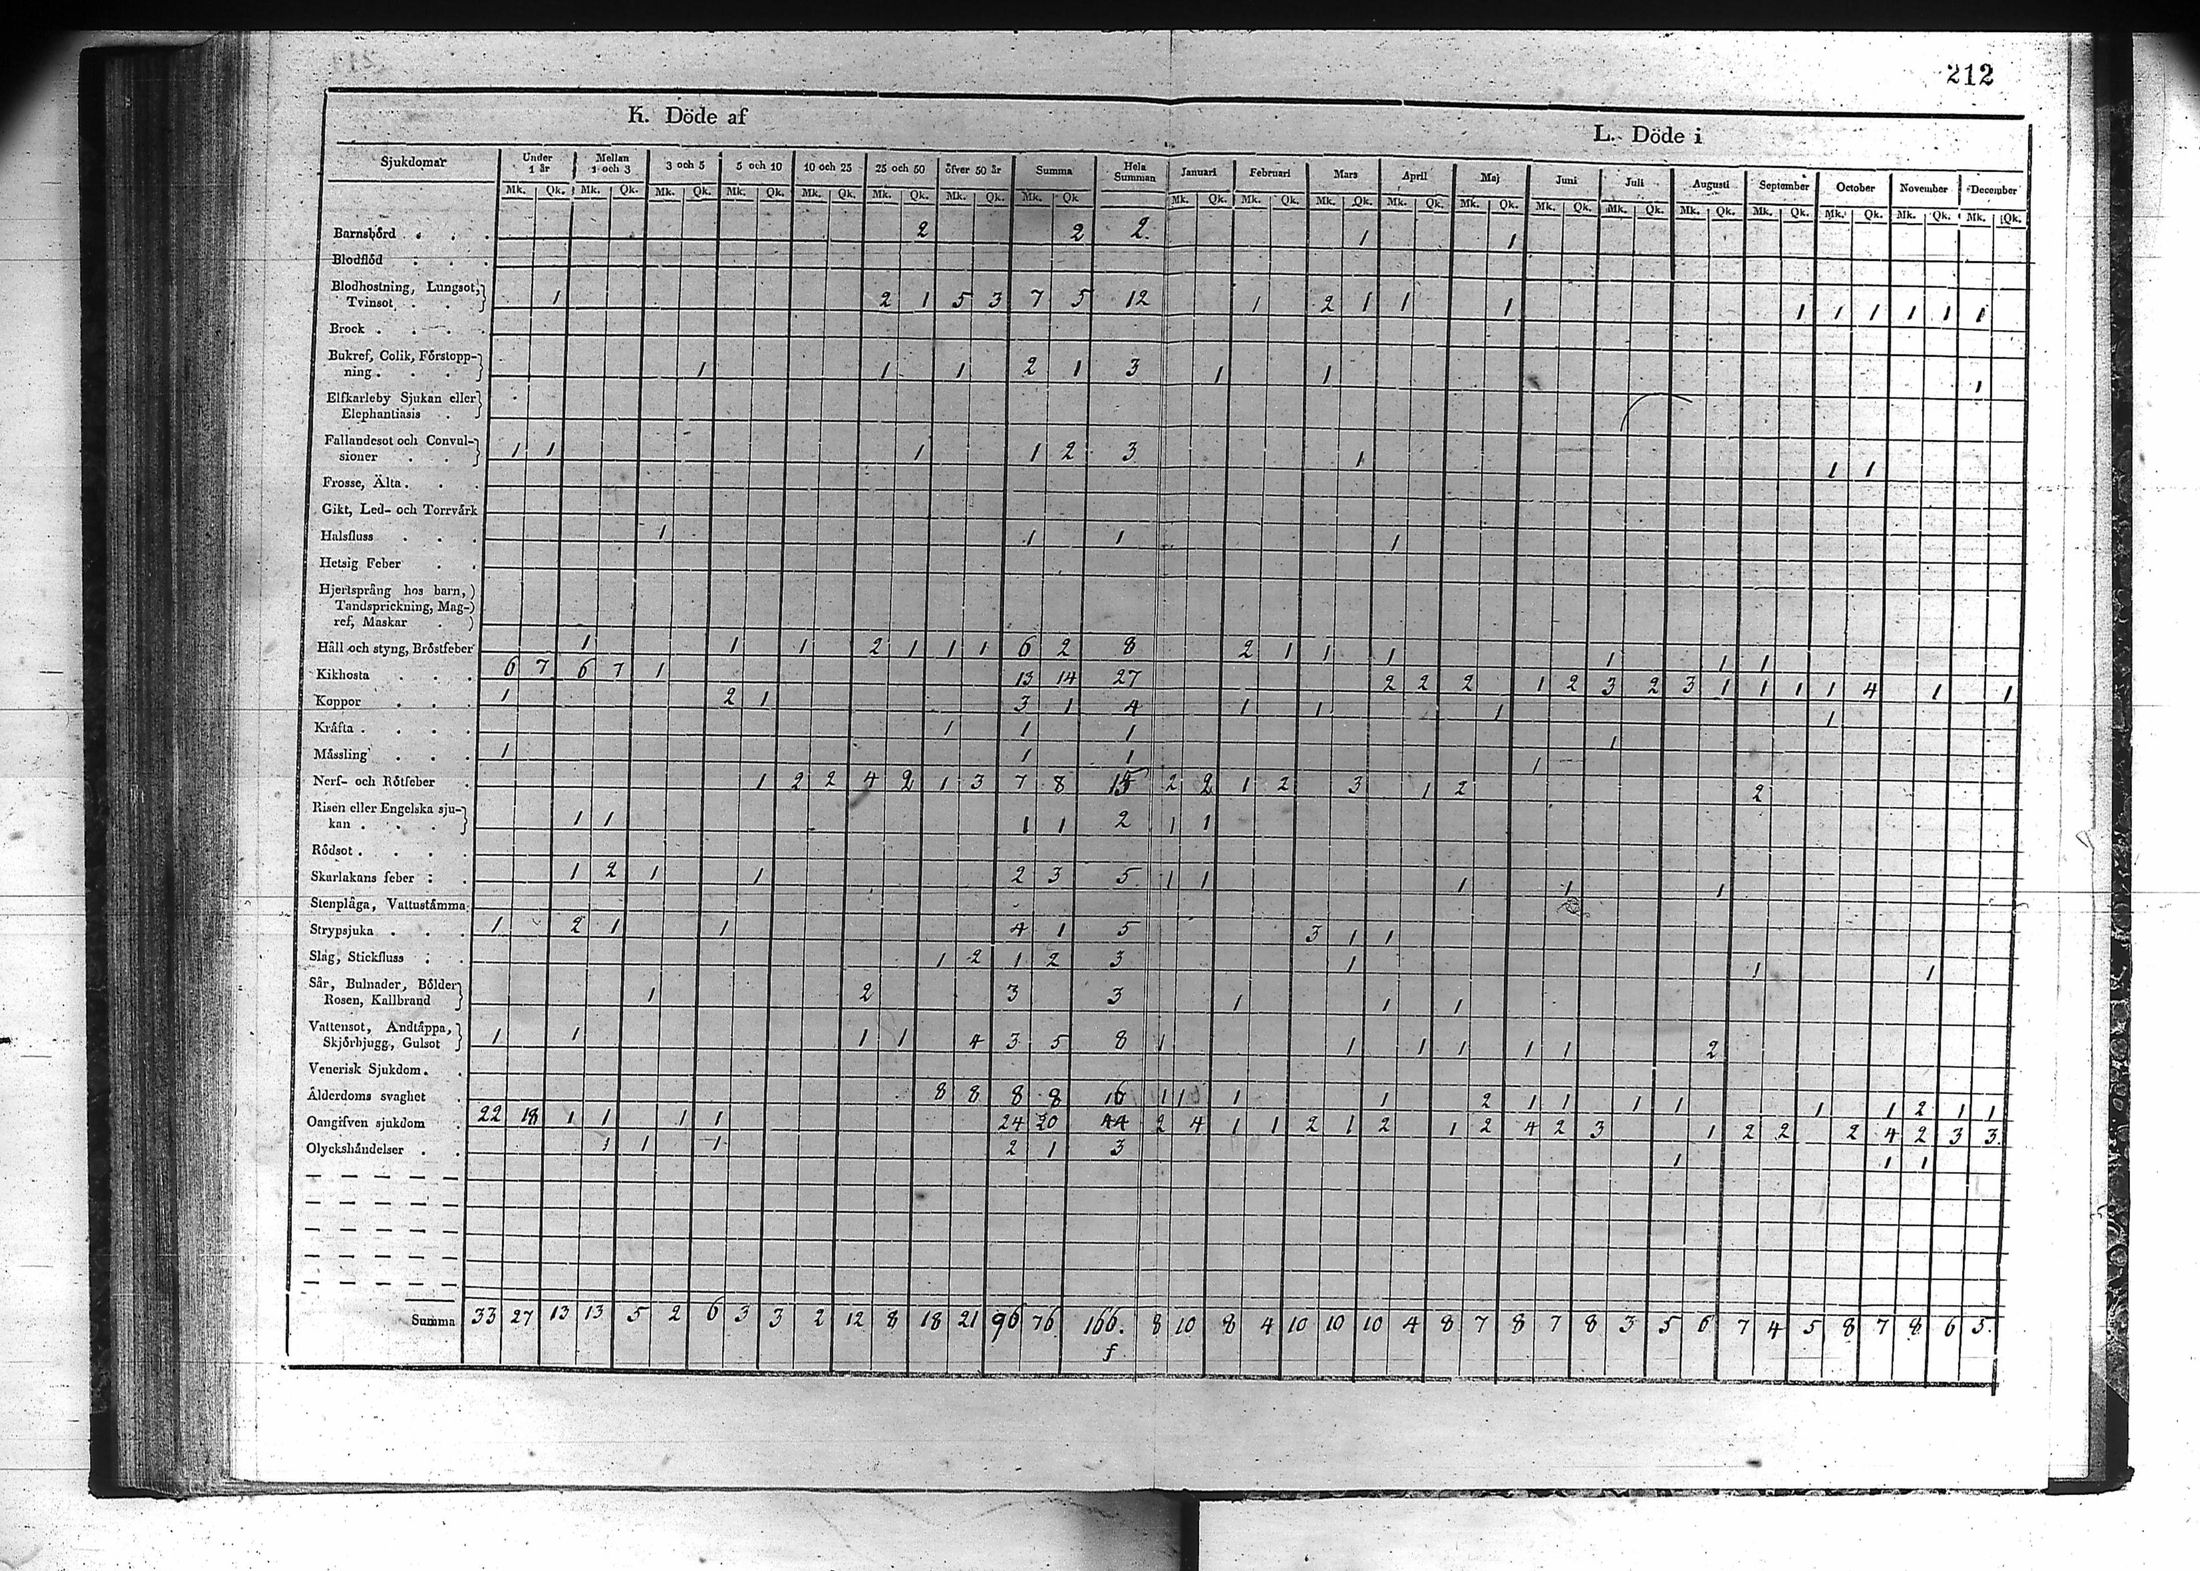 212
K. Döde af
L. Döde i
Sjukdomar Under 1 år Mellan 1 och 3 3 och 5 5 och 10 10 och 25 25 och 50 öfver 50 år Summa Hela Summan Januari Februari Mars April Maj Juni Juli Augusti September October November December
Mk. Qk. Mk. Qk. Mk. Qk. Mk. Qk. Mk. Qk. Mk. Qk. Mk. Qk. Mk. Qk Mk. Qk. Mk. Qk. Mk. Qk. Mk. Qk. Mk. Qk. Mk. Qk. Mk. Qk. Mk. Qk. Mk. Qk. Mk. Qk. Mk. Qk. Mk. Qk.
Barnsbörd 2 2 2. 1 1
Blodflöd
Blodhostning, Lungsot,
Tvinsot 1 2 1 5 3 7 5 12 1 2 1 1 1 1 1 1 1 1 1
Brock
Bukref, Colik, Förstopp-
ning 1 1 1 2 1 3 1 1 1
Elfkarleby Sjukan eller
Elephantiasis
Fallandesot och Convul-
sioner 1 1 1 1 2 3 1 1 1
Frosse, Älta
Gikt, Led- och Torrvärk
Halsfluss 1 1 1 1
Hetsig Feber
Hjertsprång hos barn,
Tandsprickning, Mag-
ref, Maskar
Håll och styng, Bröstfeber 1 1 1 2 1 1 1 6 2 8 2 1 1 1 1 1 1
Kikhosta 6 7 6 7 1 13 14 27 2 2 2 1 2 3 2 3 1 1 1 1 4 1 1
Koppor 1 2 1 3 1 4 1 1 1 1
Kräfta 1 1 1 1
Mässling 1 1 1 1
Nerf- och Rötfeber 1 2 2 4 2 1 3 7 8 15 2 2 1 2 3 1 2 2
Risen eller Engelska sju-
kan 1 1 1 1 2 1 1
Rödsot
Skarlakans feber 1 2 1 1 2 3 5 1 1 1 1 1
Stenplåga, Vattustämma
Strypsjuka 1 2 1 1 4 1 5 3 1 1
Slag, Stickfluss 1 2 1 2 3 1 1 1
Sår, Bulnader, Bölder
Rosen, Kallbrand 1 2 3 3 1 1 1
Vattensot, Andtäppa,
Skjörbjugg, Gulsot 1 1 1 1 4 3 5 8 1 1 1 1 1 1 2
Venerisk Sjukdom
Ålderdoms svaghet 8 8 8 8 16 1 1 1 1 2 1 1 1 1 1 1 2 1 1
Oangifven sjukdom 22 18 1 1 1 1 24 20 44 2 4 1 1 2 1 2 1 2 4 2 3 1 2 2 2 4 2 3 3.
Olyckshändelser 1 1 1 2 1 3 1 1 1
Summa 33 27 13 13 5 2 6 3 3 2 12 8 18 21 96 76 166. 8 10 8 4 10 10 10 4 8 7 8 7 8 3 5 6 7 4 5 8 7 8 6 5.